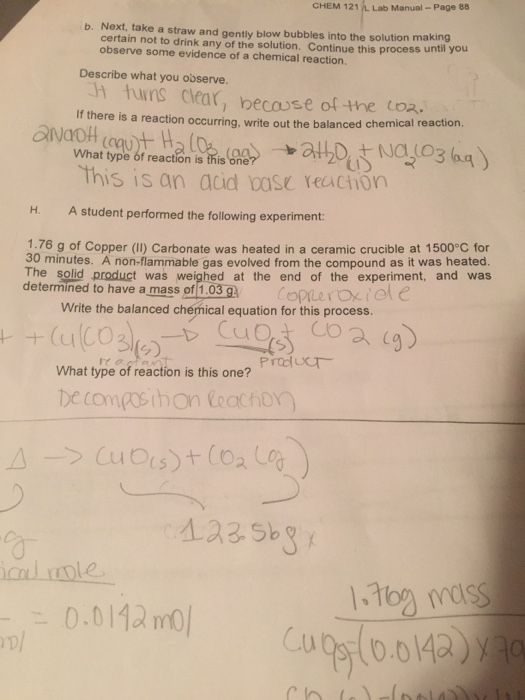 CHEM 121 L Lab Manual – Page 88
b. Next, take a straw and gently blow bubbles into the solution making
certain not to drink any of the solution. Continue this process until you
observe some evidence of a chemical reaction.
Describe what you observe.
It turns clear, because of the CO2.
If there is a reaction occurring, write out the balanced chemical reaction.
2NaOH (aqu) + H2CO3 (aq) → 2H2O (l) + Na2CO3 (aq)
What type of reaction is this one?
This is an acid base reaction
H. A student performed the following experiment:
1.76 g of Copper (II) Carbonate was heated in a ceramic crucible at 1500°C for
30 minutes. A non-flammable gas evolved from the compound as it was heated.
The solid product was weighed at the end of the experiment, and was
determined to have a mass of 1.03 g.
Write the balanced chemical equation for this process.
+ Cu(CO3)(s) → CuO(s) + CO2 (g)
reactant product
What type of reaction is this one?
Decomposition Reaction
Δ → CuO(s) + CO2 (g)
123.56g
g
mole
= 0.0142 mol
1.76g mass
(0.0142) x 79